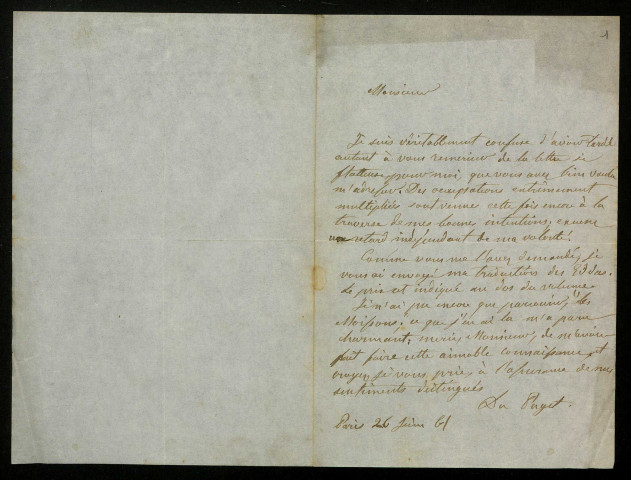 1
Monsieur
Je suis véritablement confuse d'avoir tardé
autant à vous remercier de la lettre si
flatteuse pour moi, que vous avez bien voulu
m'adresser. Des occupations extrêmement
multipliées sont venues cette fois encore à la
traverse de mes bonnes intentions, excusez
un retard indépendant de ma volonté.
Comme vous me l'avez demandé, je
vous ai envoyé ma traduction des Eddas.
Le prix est indiqué au dos du volume.
Je n'ai pu encore que parcourir les
Moissons; ce que j'en ai lu m'a paru
charmant; merci Monsieur, de m'avoir
fait faire cette aimable connaissance, et
croyez, je vous prie, à l'assurance de mes
sentiments distingués
Du Puget.
Paris 26 Juin 61